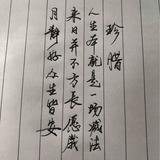 珍腊
人生本就是一场减法
来日并不方长愿岁
月静好众生皆安